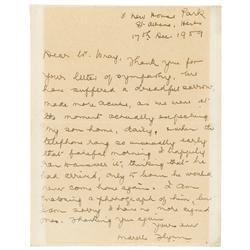 8 New House Park
St. Albans, Herts
17th Dec. 1959
Dear Mr. May, Thank you for
your letter of sympathy. We
have suffered a dreadful sorrow,
made more acute, as we were at
the moment actually expecting
my son home, daily. When the
telephone rang so unusually early
that fateful morning I happily
ran to answer it, thinking that he
had arrived, only to learn he would
never come home again. I am
enclosing a photograph of him, but
am sorry I have no more signed
ones. Thanking you again
Yours sin
Marelle Flynn